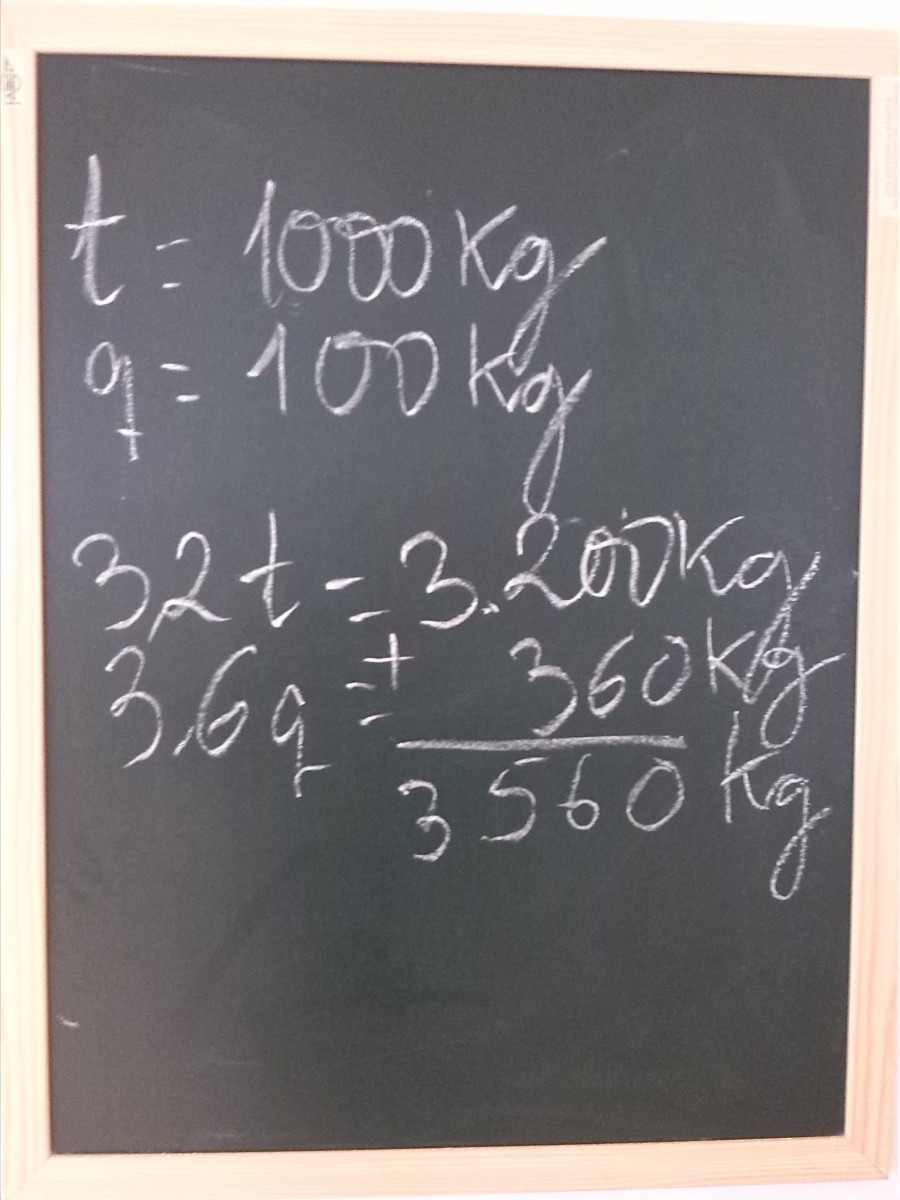 t = 1000 Kg
q = 100 Kg
3,2 t = 3.200 Kg
3,6 q = + 360 Kg
3560 Kg